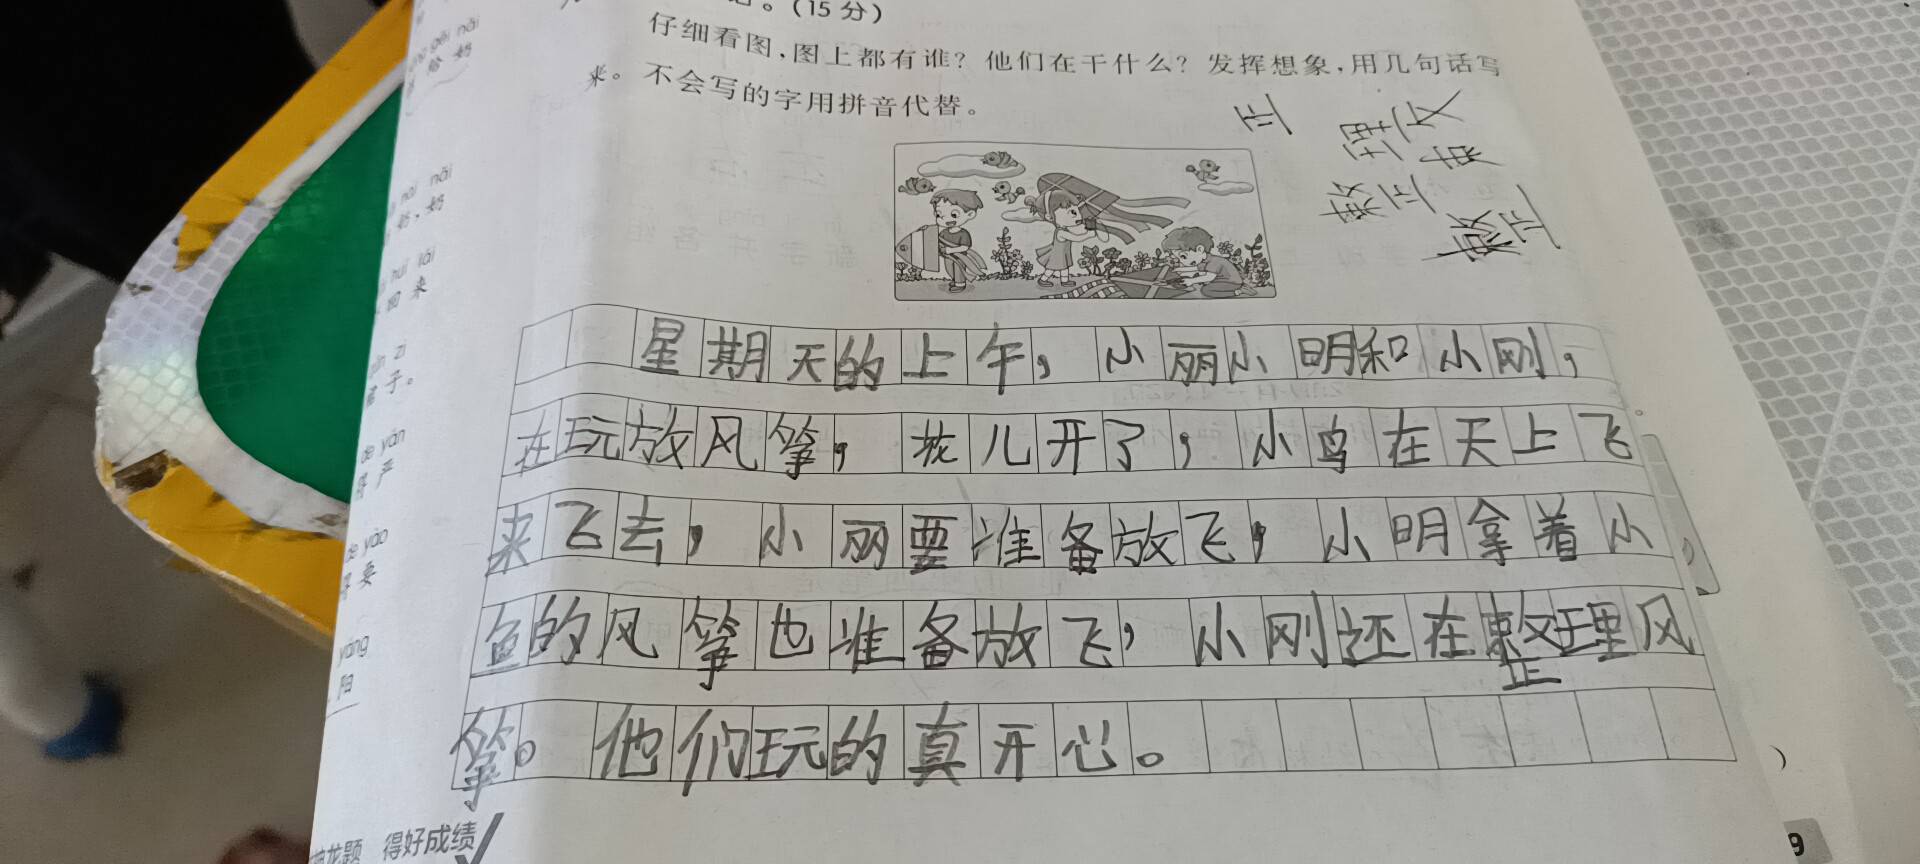 。(15 分)
仔细看图,图上都有谁? 他们在干什么? 发挥想象,用几句话写
来。不会写的字用拼音代替。
星期天的上午，小丽小明和小刚，
在玩放风筝，花儿开了，小鸟在天上飞
来飞去，小丽要准备放飞，小明拿着小
鱼的风筝也准备放飞，小刚还在整理风
筝。他们玩的真开心。
gěi nǎi
给 奶
nai nǎi
奶，奶
huí lái
回 来
zi
子。
de yán
得 严
de yào
得 要
yáng
阳
龙题 得好成绩
9